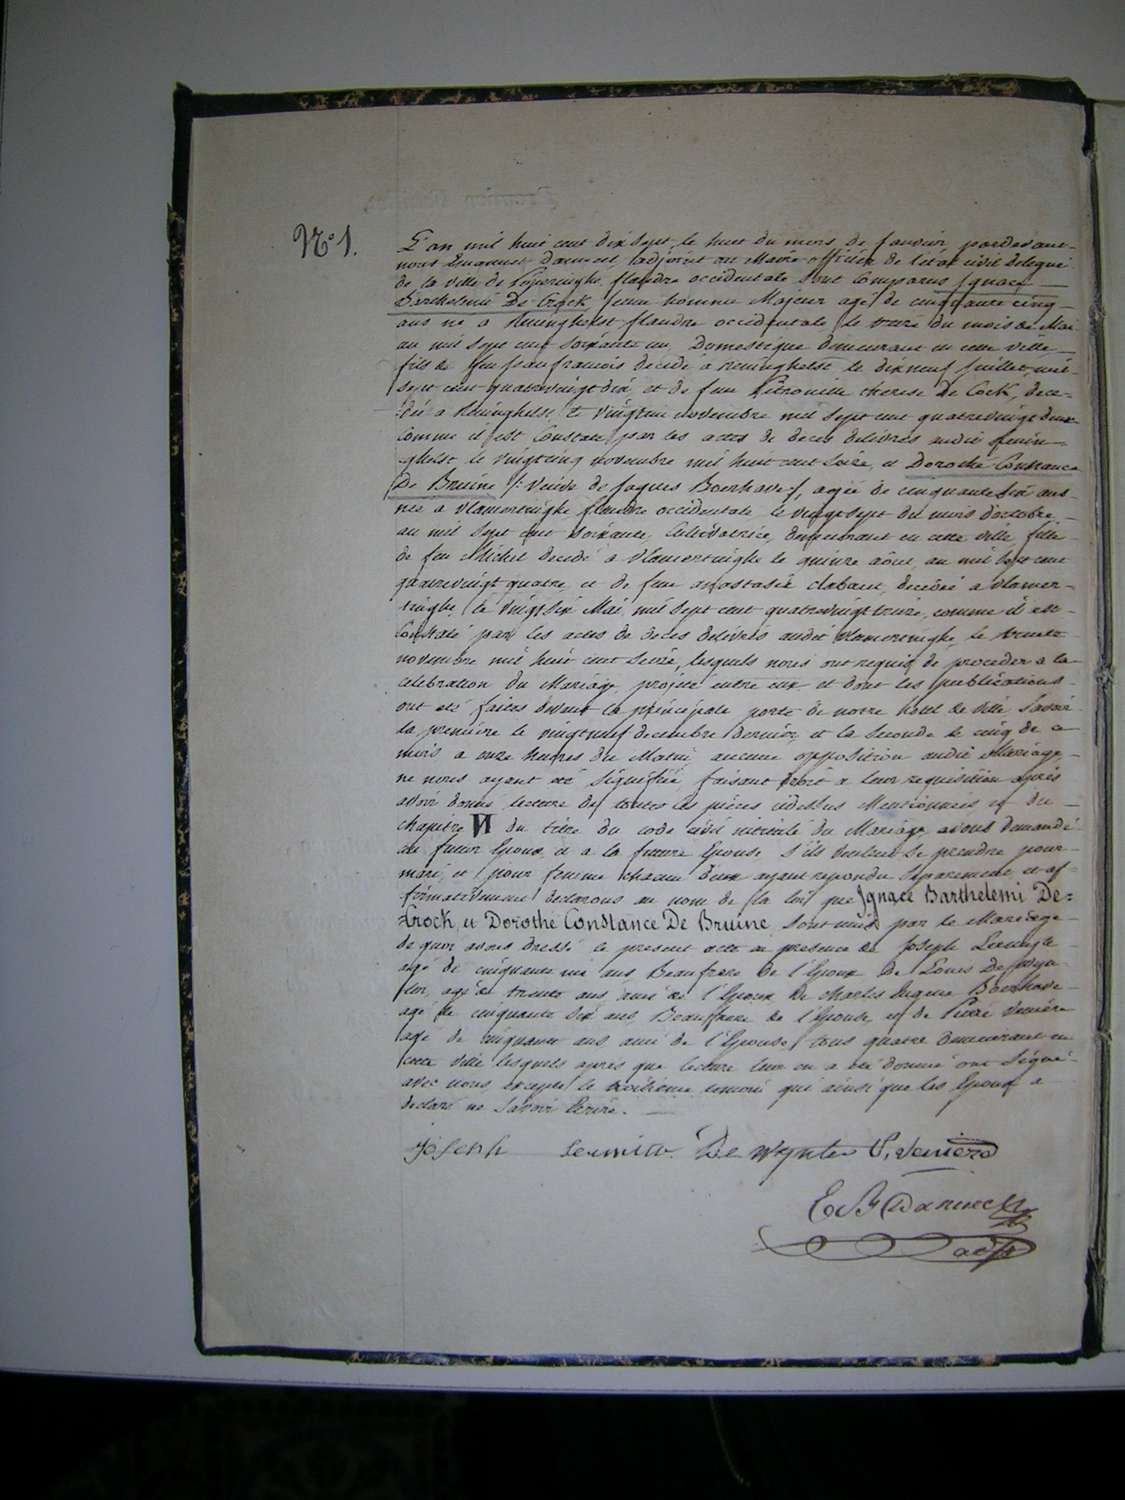 N° 1.
L'an mil huit cent dix sept, le huit du mois de Janvier pardevant
nous Emanuel Danneel adjoint au Maire officier de l'état civil delegué
de la ville de Poperinghe, flandre occidentale sont Comparus Ignace
Barthelemi De Crock jeune homme Majeur agé de cinquante cinq
ans né a Reninghelst flandre occidentale le treize du mois de Mai
au mil sept cent soixante un, Domestique demeurant en cette ville
fils de feu Jean francois decédé a Reninghelst le dix neuf Juillet mil
sept cent quatrevingt dix et de feue Petronille therese De Cock, dece-
dée a Reninghelst le vingt un novembre mil sept cent quatrevingt deux
Comme il est Constaté par les actes de deces delivrés audit Renin-
ghelst le vingt cinq novembre mil huit cent seize, et Dorothé Constance
De Bruine /: Veuve de Jaques Boerhave :/, agée de cinquante six ans
née a Vlamertinghe flandre occidentale le vingt sept du mois d'octobre
au mil sept cent soixante, Cultivatrice, demeurant en cette ville, fille
de feu Michel decedé a Vlamertinghe le quinze aout au mil sept cent
quatrevingt quatre, et de feue anastasie clabaut, decédée a Vlamer-
tinghe, le vingt six Mai, mil sept cent quatrevingt treize, comme il est
Constaté par les actes de deces delivrés audit Vlamertinghe, le trente
novembre mil huit cent seize, lesquels nous ont requis de proceder a la
celebration du Mariage projeté entre eux et dont les publications
ont eté faites devant la principale porte de notre hotel de ville Savoir
la premiere le vingt neuf decembre dernier, et la seconde le cinq de ce
mois a onze heures du Matin, aucune opposition audit Mariage
ne nous ayant eté signifiée, faisant droit a leur requisition après
avoir donné lecture de toutes les pièces cidessus Mentionnées et du
chapitre VI du titre du code civil intitulé du Mariage avons demandé
au futur Epoux et a la future Epouse s'ils veulent se prendre pour
mari et pour femme chacun d'eux ayant repondu separement et af-
firmativement declarons au nom de la loi que Ignace Barthelemi De-
Crock, et Dorothé Constance De Bruine, sont unis par le Mariage
de quoi avons dressé ce present acte en presence de Joseph
agé de cinquante un ans Beaufrere de l'Epoux de Louis De Wyn-
ter, agé de trente ans ami de l'Epoux de Charles Eugene Boerhave
agé de cinquante six ans Beaufrere de l'Epouse, et de Pierre
agé de cinquante ans ami de l'Epouse, tous quatre demeurant en
cette ville lesquels après que lecture leur en a eté donné ont signé
avec nous excepté le troisieme temoin qui ainsi que les Epoux a
declaré ne savoir Ecrire.
Joseph De Wynter P.
E. B. Danneel
adjt